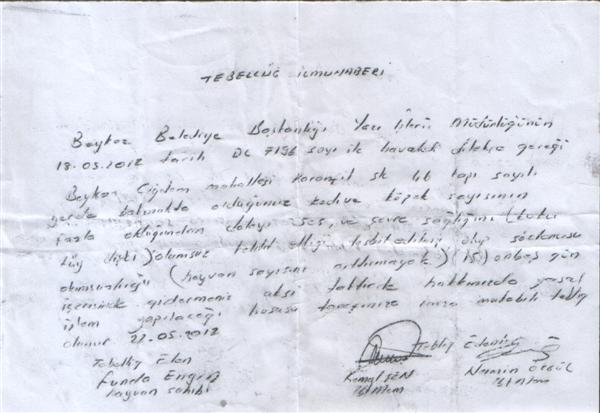 TEBELLÜĞ İLMUHABERİ
Beykoz Belediye Başkanlığı Yazı İşleri Müdürlüğünün
18.05.2012 tarih DC 7136 sayı ile havaleli dilekçe gereği
Beykoz Çiğdem mahallesi Karanfil sk 46 kapı sayılı
yerde bakmakta olduğunuz kedi ve köpek sayısının
fazla olduğundan dolayı ses, ve çevre sağlığını (koku
tüy dışkı) olumsuz tehdit ettiği tesbit edilmiş olup sözkonusu
olumsuzluğu (hayvan sayısını arttırmayarak) (15) onbeş gün
içerisinde gidermeniz aksi taktirde hakkınızda yasal
işlem yapılacağı hususu tarafınıza imza mukabili tebliğ
olunur 22.05.2012
Tebellüğ Eden
Funda Engin
hayvan sahibi
Tebliğ Edenler
Kemal ŞEN
Nermin